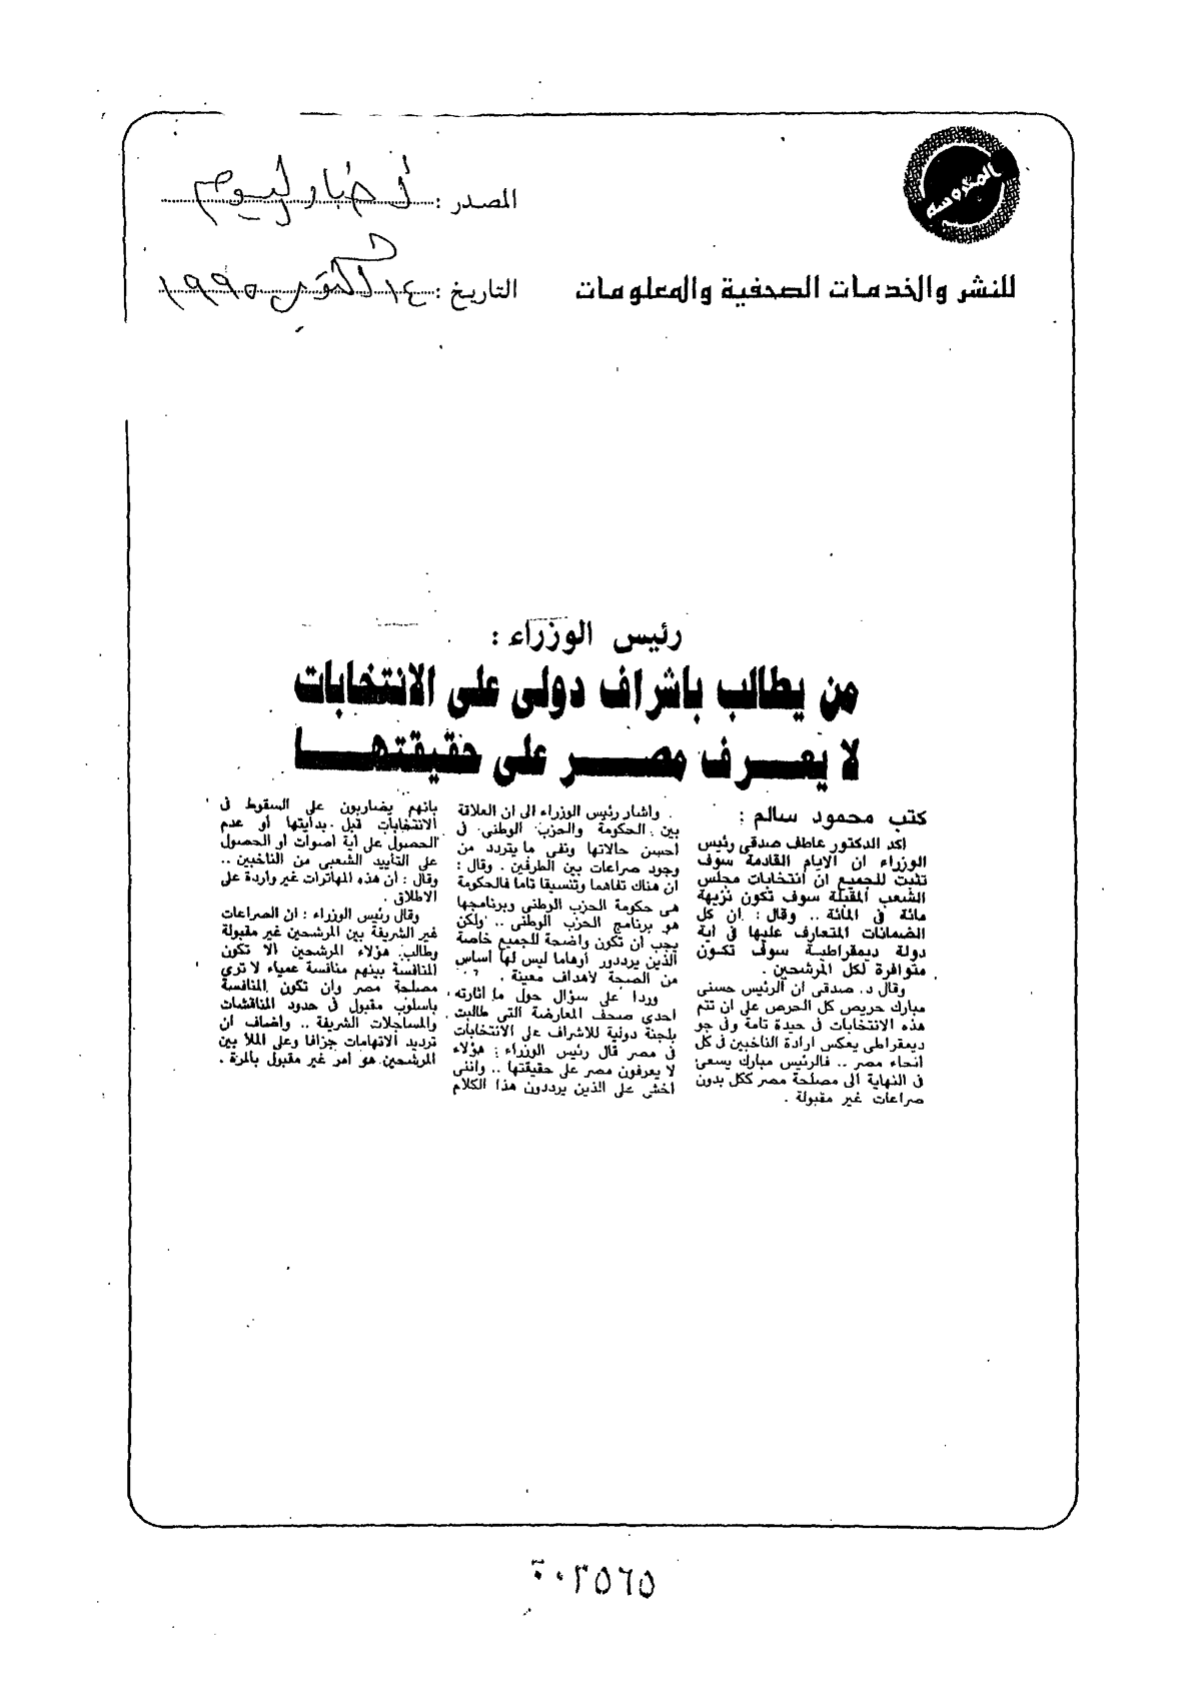 المحروسة
المصدر : أخبار اليوم
للنشر والخدمات الصحفية والمعلومات
التاريخ : ١٤ أكتوبر ١٩٩٥
رئيس الوزراء :
من يطالب باشراف دولى على الانتخابات
لا يعرف مصر على حقيقتها
كتب محمود سالم :
اكد الدكتور عاطف صدقى رئيس
الوزراء ان الايام القادمة سوف
تثبت للجميع ان انتخابات مجلس
الشعب المقبلة سوف تكون نزيهة
مائة فى المائة .. وقال : ان كل
الضمانات المتعارف عليها فى اية
دولة ديمقراطية سوف تكون
متوافرة لكل المرشحين .
وقال د. صدقى ان الرئيس حسنى
مبارك حريص كل الحرص على ان تتم
هذه الانتخابات فى حيدة تامة وفى جو
ديمقراطى يعكس ارادة الناخبين فى كل
انحاء مصر .. فالرئيس مبارك يسعى
فى النهاية الى مصلحة مصر ككل بدون
صراعات غير مقبولة .
واشار رئيس الوزراء الى ان العلاقة
بين الحكومة والحزب الوطنى فى
احسن حالاتها ونفى ما يتردد من
وجود صراعات بين الطرفين . وقال :
ان هناك تفاهما وتنسيقا تاما فالحكومة
هى حكومة الحزب الوطنى وبرنامجها
هو برنامج الحزب الوطنى .. ولكن
يجب ان تكون واضحة للجميع خاصة
الذين يرددور أوهاما ليس لها اساس
من الصحة لأهداف معينة .
وردا على سؤال حول ما اثارته
احدى صحف المعارضة التى طالبت
بلجنة دولية للاشراف على الانتخابات
فى مصر قال رئيس الوزراء : هؤلاء
لا يعرفون مصر على حقيقتها .. واننى
اخشى على الذين يرددون هذا الكلام
بانهم يضاربون على السقوط فى
الانتخابات قبل بدايتها أو عدم
الحصول على اية اصوات او الحصول
على التأييد الشعبى من الناخبين ..
وقال : ان هذه المهاترات غير واردة على
الاطلاق .
وقال رئيس الوزراء : ان الصراعات
غير الشريفة بين المرشحين غير مقبولة
وطالب هؤلاء المرشحين الا تكون
المنافسة بينهم منافسة عمياء لا ترى
مصلحة مصر وان تكون المنافسة
باسلوب مقبول فى حدود المناقشات
والمساجلات الشريفة .. واضاف ان
ترديد الاتهامات جزافا وعلى الملأ بين
المرشحين هو امر غير مقبول بالمرة .
٠٠٣٥٦٥